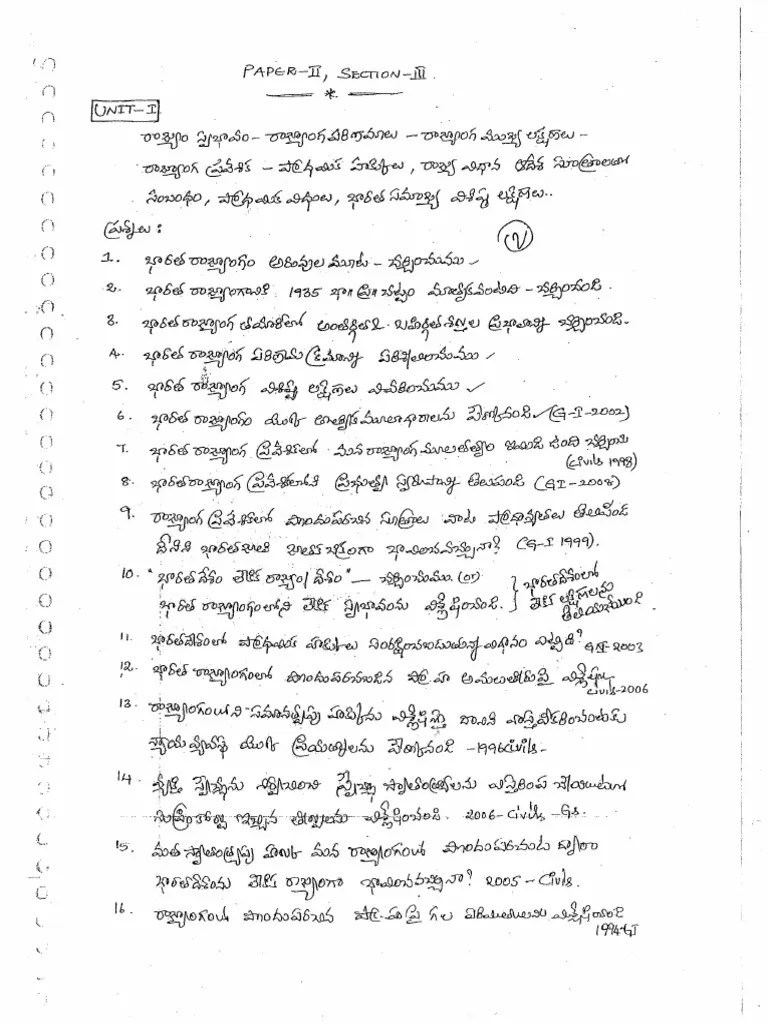 PAPER-II, SECTION-III.
UNIT-I
రాజ్యాంగ స్వభావం - రాజ్యాంగ పరిణామాలు - రాజ్యాంగ ముఖ్య లక్షణాలు -
రాజ్యాంగ ప్రవేశిక - ప్రాథమిక హక్కులు, రాజ్య విధాన ఆదేశ సూత్రాలతో
సంబంధం, ప్రాథమిక విధులు, భారత సమాఖ్య విశిష్ట లక్షణాలు..
ప్రశ్నలు :
1. భారత రాజ్యాంగం అరువుల మూట - చర్చించుము
2. భారత రాజ్యాంగానికి 1935 భా॥ ప్ర॥ చట్టం మాతృకవంటిది - చర్చించండి.
3. భారత రాజ్యాంగ తయారీలో అంతర్గత & బహిర్గత శక్తుల ప్రభావాన్ని చర్చించండి.
4. భారత రాజ్యాంగ పరిణామ క్రమాన్ని పరిశీలించుము
5. భారత రాజ్యాంగ విశిష్ట లక్షణాలు వివరించుము
6. భారత రాజ్యాంగం యొక్క తాత్విక మూలాధారాలను పేర్కొనండి (G-I-2002)
7. భారత రాజ్యాంగ ప్రవేశికలో మన రాజ్యాంగ మూలతత్వం ఇమిడి ఉంది చర్చించు
(Civils 1998)
8. భారత రాజ్యాంగ ప్రవేశికలోని ప్రభుత్వ స్వరూపాన్ని తెలుపండి (GI-2008)
9. రాజ్యాంగ ప్రవేశికలో పొందుపరచిన సూత్రాలు వాటి ప్రాధాన్యతలు తెలిపండి
దీనిని భారతజాతి జాతకచక్రంగా భావించవచ్చునా? (G-I 1999).
10. "భారతదేశం లౌకిక రాజ్యం/దేశం" - చర్చించుము. (or)
భారత రాజ్యాంగంలోని లౌకిక స్వభావంను విశ్లేషించండి.
భారతదేశంలో
లౌకిక లక్షణాలను
తెలియజేయండి.
11. భారతదేశంలో ప్రాథమిక హక్కులు సంరక్షించబడుచున్న విధానం ఎట్టిది? GI-2003
12. భారత రాజ్యాంగంలో పొందుపరచబడిన ప్రా.హ అమలుతీరుపై విశ్లేషణ
Civils-2006
13. రాజ్యాంగంలోని సమానత్వపు హక్కును విశ్లేషిస్తూ దానిని వాస్తవీకరించుటకు
న్యాయవ్యవస్థ యొక్క ప్రయత్నాలను పేర్కొనండి -1996 Civils-
14. వ్యక్తి స్వేచ్ఛను నిర్వచించి స్వేచ్ఛా స్వాతంత్ర్యాలను విస్తరింప చేయుటలో
సుప్రీంకోర్టు ఇచ్చిన తీర్పులను విశ్లేషించండి. 2006-Civils-GS.
15. మత స్వాతంత్ర్యపు హక్కు మన రాజ్యాంగంలో పొందుపరచుట ద్వారా
భారతదేశంను లౌకిక రాజ్యాంగా భావించవచ్చునా? 2005-Civils.
16. రాజ్యాంగంలో పొందుపరచిన ప్రా.హ పై గల పరిమితులను విశ్లేషించండి
1994-GI